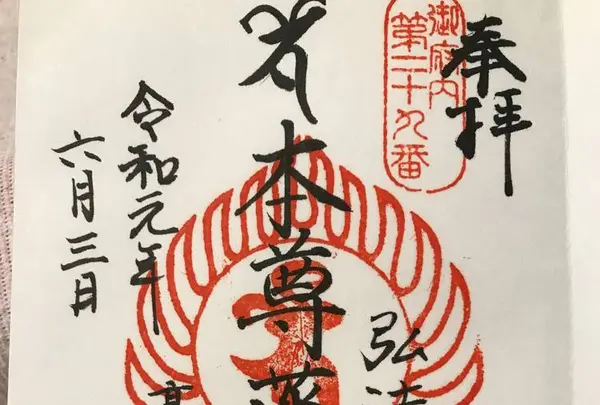 奉拝
御府内
第二十九番
弘法
本尊薬
令和元年
六月三日